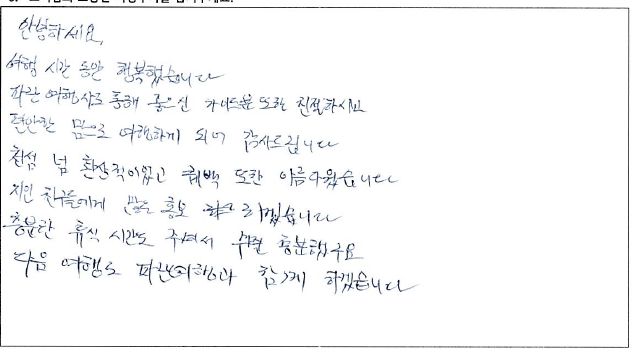 안녕하세요,
여행 시간 동안 행복했습니다
파란 여행사로 통해 좋으신 가이드분 또한 친절하시며
편안한 맘으로 여행하게 되어 감사드립니다
천섬 넘 환상적이었고 퀘백 또한 아름다웠습니다
지인 친구들에게 많은 홍보 하겠습니다
충분한 휴식 시간도 주셔서 충분했구요
다음 여행도 파란여행과 함께 하겠습니다